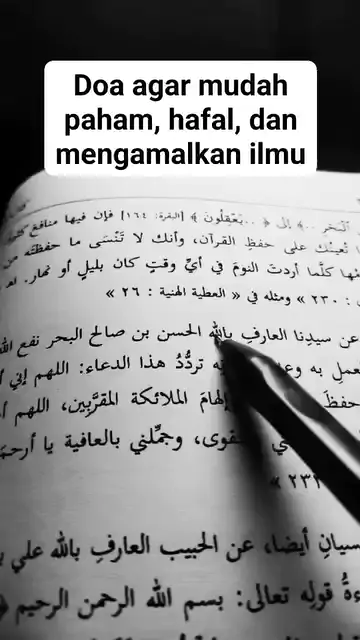 Doa agar mudah
paham, hafal, dan
mengamalkan ilmu
البحر ..﴾ إلى ﴿ ..يَعْقِلُونَ ﴾ [البقرة: ١٦٤] فإن فيها منافع
تُعينُك على حفظِ القرآن، وأنك لا تَنْسَى ما حفظتَه من
كلَّما أردتَ النومَ في أيِّ وقتٍ كان بليلٍ أو نهار.
٢٣٠ » ومثله في « العطية الهنية : ٢٦ »
عن سيدِنا العارفِ بالله الحسن بن صالح البحر نفع الله
به تردُّدُ هذا الدعاء: اللهم إني
حفظَ إلهامَ الملائكة المقرَّبِين، اللهم
وجمِّلني بالعافية يا أرحمَ
« ٢٣٢
أيضا، عن الحبيب العارفِ بالله علي
قولِه تعالى: بسم الله الرحمن الرحيم ﴿